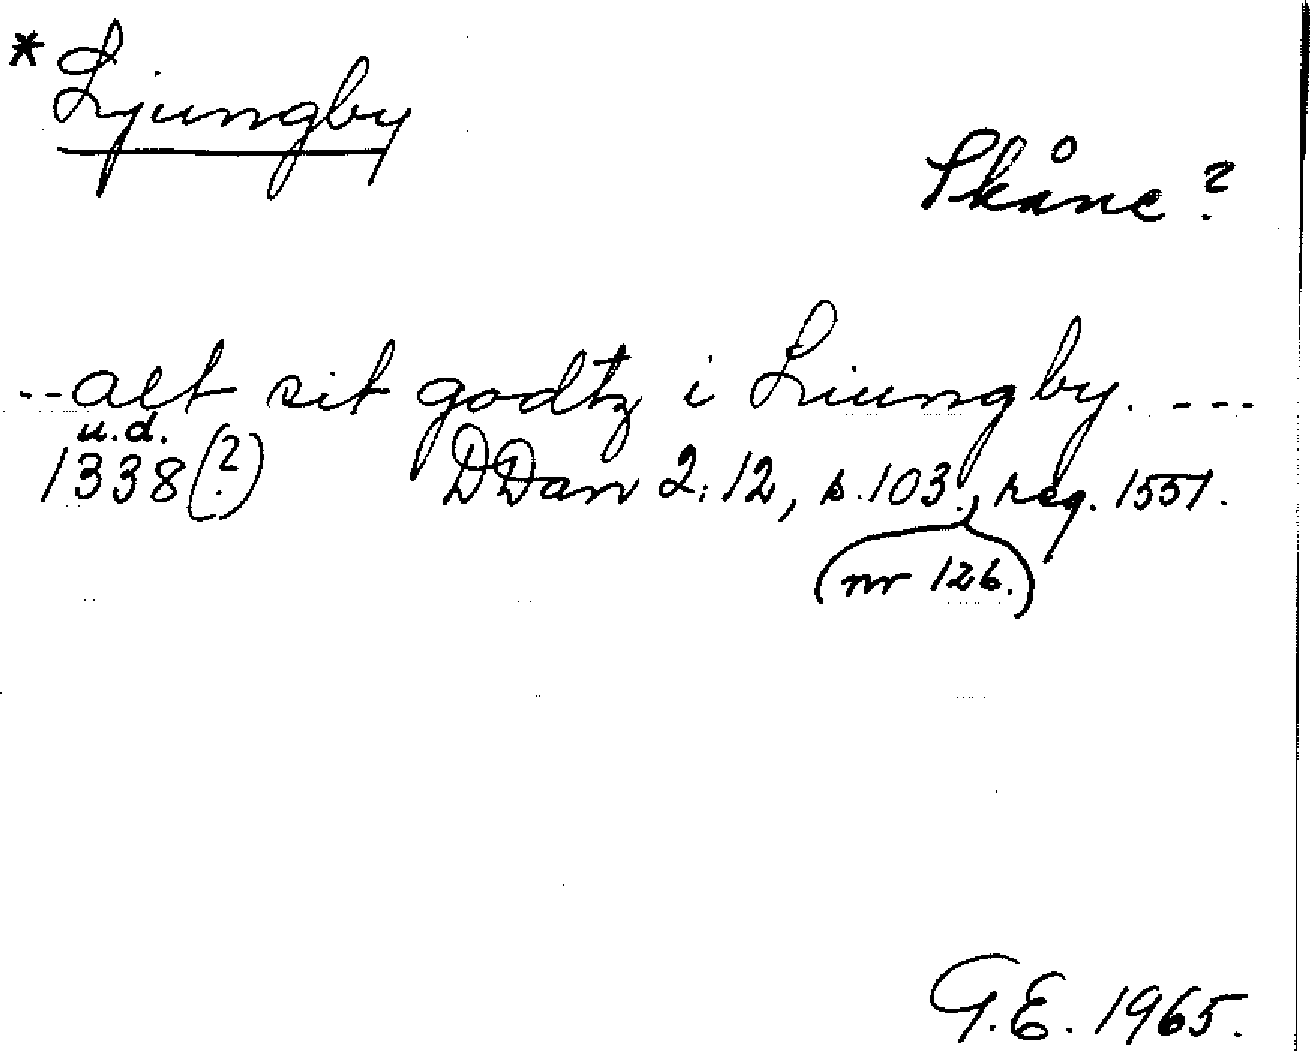 * Ljungby
Skåne?
--alt sit godtz i Liungby. ---
u.d.
1338(?) DDan 2:12, s.103., reg. 1551.
(nr 126.)
G.E. 1965.